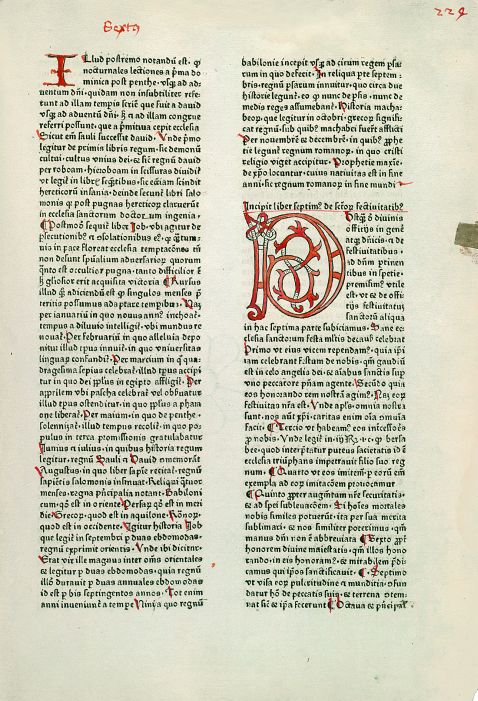 Sexta
224
Illud postremo notandū est · qp
nocturnales lectiones a p̄ma do
minica post penthe · vsqȝ ad ad-
uentum dn̄i · quidam non insubtiliter refe-
runt ad illam tempis seriē que fuit a dauid
vsqȝ ad aduentū dn̄i · hȝ ⁊ ad illam congrue
referri possunt · que a p̄mitiua cepit ecclesia
Sicut em̄ sauli successit dauid · Vnde p̄mo
legitur de primis libris regum · sic demonū
cultui · cultus vnius dei · ⁊ sic regnū dauid
per roboam · hieroboam in scissuras diuidit̄
vt legit̄ in libr̄ seq̄ntibus · sic eciam scindit̄
hereticorū insania · deinde secunt̄ libri salo-
monis qȝ post pugnas hereticoꝝ claruerūt
in ecclesia sanctorum doctorum ingenia ·
Postmodū sequit̄ liber Iob · vbi agitur de
p̄secutionibȝ ⁊ ⁊ꝯsolationibus ei⁹ · qȝ q̄mtum-
uis in pace floreat ecclesia temptacōnes tn̄
non desunt spūalium aduersarioꝝ · quorum
q̄nto est occultior pugna · tanto difficilior ē
⁊ gl̄osior erit acquisita victoria Rursus
illud q̄ȝ adiciendū est qp singulos menses p̄-
teritis possumus adaptare tempibus · Nā
per ianuariū in quo nouus ann⁹ inchoat̄
tempus a diluuio intelligit̄ · vbi mundus re
nouat̄ · Per februariū in quo alleluia depo
nitur illud tp̄us innuit̄ · in quo vniuersitas
linguaꝝ confundit̄ · Per marcium in q̄ qua-
dragesima sepius celebrat̄ · illud tp̄us accipi
tur in quo dei pp̄lus in egipto affligit̄ · Per
aprilem vbi pascha celebrat̄ vel obbatur
illud tp̄us ostenditur · in quo pp̄lus a phara
one liberat̄ · Per maium · in quo de penthe ·
solennizat̄ · illud tempus recolit̄ · in quo po
pulus in terea promissionis gratulabatur
Iunius ⁊ iulius · in quibus historia regum
legitur · regnū Sauli ⁊ Dauid ꝯmemorāt
Augustus · in quo liber sapīe recitat̄ · regnū
sapiētis salomonis insinuat̄ · Reliqui quatuor
menses · regna p̄ncipalia notant · Babiloni
cum · qđ est in oriente · Persaꝝ · qđ est in meri
die · Grecoꝝ · quod est in aquilone · Romanoꝝ ·
quod est in occidente · Igitur historia Iob
que legit̄ in septembri p̄ duas ebdomadas ·
regnū exprimit orientis · Vnde ibi dicitur
Erat vir ille magnus inter om̄s orientales
⁊ legitur p̄ duas ebdomadas · quia regnū
illō durauit p̄ duas annuales ebdomodas
id est p̄ bis septingentos annos · Tot enim
anni inueniunt̄ a tempe Nini · a quo regnū
babilonie incepit vsqȝ ad cirum regem p̄sa-
rum in quo defecit · In reliqua p̄te septem-
bris · regnū p̄sarum innuitur · quo circa due
historie leguntur · eo qp nunc de p̄sis · nunc de
medis reges assumebant̄ · Historia macha-
beoꝝ · que legitur in octobri · grecoꝝ signifi-
cat regnū · sub quibȝ machabei fuerūt afflicti
Per nouembrē ⁊ decembrē · in quibȝ ꝓphe
tie legunt̄ regnum romanoꝝ · in quo cristi
religio viget accipitur · Prophetie maxie ·
de xp̄o locuntur · cuius nativitas est in fine
anni · sic regnum romanoꝝ in fine mundi
Incipit liber septim⁹ · de sctoꝝ festiuitatibȝ
Postqȝ d̄ diuinis
officijs in gene
re atqȝ dn̄icis · ⁊ de
festiuitatibus ·
ad dn̄m ptinen
tibus in spetie ·
premisim⁹ · vtile
est · vt ⁊ de offi-
tijs festiuitatū
sanctorū aliqua
in hac septima parte subiciamus · Sane ec-
clesia sanctorum festa multis de causis celebrat
Primo vt eius vicem rependam⁹ · quia ipsi
iam celebrant festum de nobis · qm̄ gaudiū
est in celo angelis dei · ⁊ aīabus sanctis sup
vno peccatore pn̄iam agente · Secūdo quia
eos honorando rem nostrā agim⁹ · Nā eoꝝ
festiuitas nr̄a est · Vnde apl̄us · omnia nostra
sunt · nos aūt xp̄i · caritas enim om̄ia ꝯmuni-
cat Tercio vt habeam⁹ eos intercessores
ꝓ nobis · Vnde legit̄ in iij Rȝ · i · c · qp bersa-
bee · quod interp̄tatur puteus sacietatis id est
ecclesia triūphans impetrauit filio suo reg
num · Quarto vt eos imitem̄ · p eorū em̄
exempla ad eoꝝ imitacōem prouocamur
Quinto ꝓpter augm̄tum nr̄e securitatis ·
⁊ ad spei subleuacōem · Si homines mortales
nobis similes potuerunt · ita per sua merita
sublimari · ⁊ nos similiter poterimus · qm̄
manus dn̄i non ē abbreuiata Sexto ꝓpt̄
honorem diuine maiestatis · qm̄ illos hono
rando · in eis honoram⁹ · ⁊ mirabilem p̄di-
camus qui ip̄os sanctificauit · Septimo
vt visa eoꝝ pulcritudine ⁊ munditia · ꝯfun
datur hō de peccatis suis ⁊ terrena ꝯtem-
nat sic ⁊ ip̄i fecerunt Octaua ⁊ p̄ncipalis